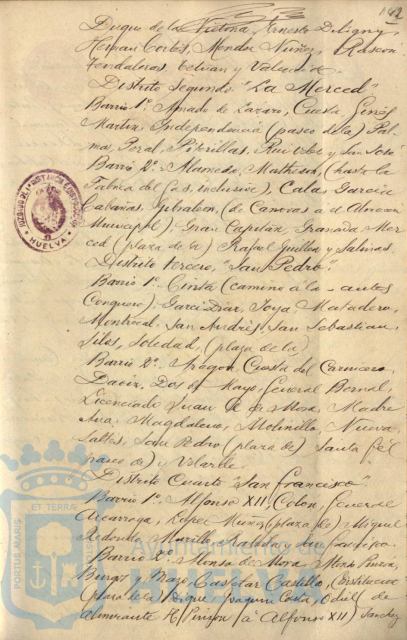 142
Duque de la Victoria, Ernesto Deligny,
Hernan Cortés, Mendez Nuñez, Rascon
Tendaleras, Tetuan y
Distrito Segundo "La Merced"
Barrio 1º. Amado de Lazaro, Cuesta, Ginés
Martin, Independencia (paseo de la) Pal-
ma, Peral, Piterillas, y San José
Barrio 2º. Alameda, Matheson, (hasta la
Fabrica del Gas, inclusive), Calas, Garcia
Cabañas, Gibraleon, (de Canovas a el Almacen
Municipal) Gran Capitán, Granada, Mer-
ced (plaza de la) Rafael Guillen y Salinas
Distrito tercero, "San Pedro".
Barrio 1º. Cinta (camino a la - antes
Conquero) Garci Diaz, Joya, Matadero,
Monrocal, San Andrés, San Sebastian,
Siles, Soledad, (plaza de la)
Barrio 2º. Aragon, Cuesta del Carnicero,
Daoiz, Dos de Mayo, General Bernal,
Licenciado Juan A. de Mora, Madre
Ana, Magdalena, Molinillo, Nueva,
Saltes, San Pedro (plaza de) Santa Fé (
paseo de) y Velarde.
Distrito Cuarto "San Francisco"
Barrio 1º. Alfonso XII, Colon, General
Azcarraga, Lopez Muñoz (plaza de) Miguel
Redondo, Murillo, Rabida,
Barrio 2º. Alonso de Mora,
Burgos y Mazo, Castelar, Castillo, Constitucion
(plaza de la) Duque, Joaquin Costa, Odiel de
Almirante H. Pinzon (á Alfonso XII) Sanchez
JUZGADO DE 1ª INSTANCIA E INSTRUCCION
HUELVA
PORTUS MARIS ET TERRÆ CUSTODIA
Ayuntamiento de Huelva